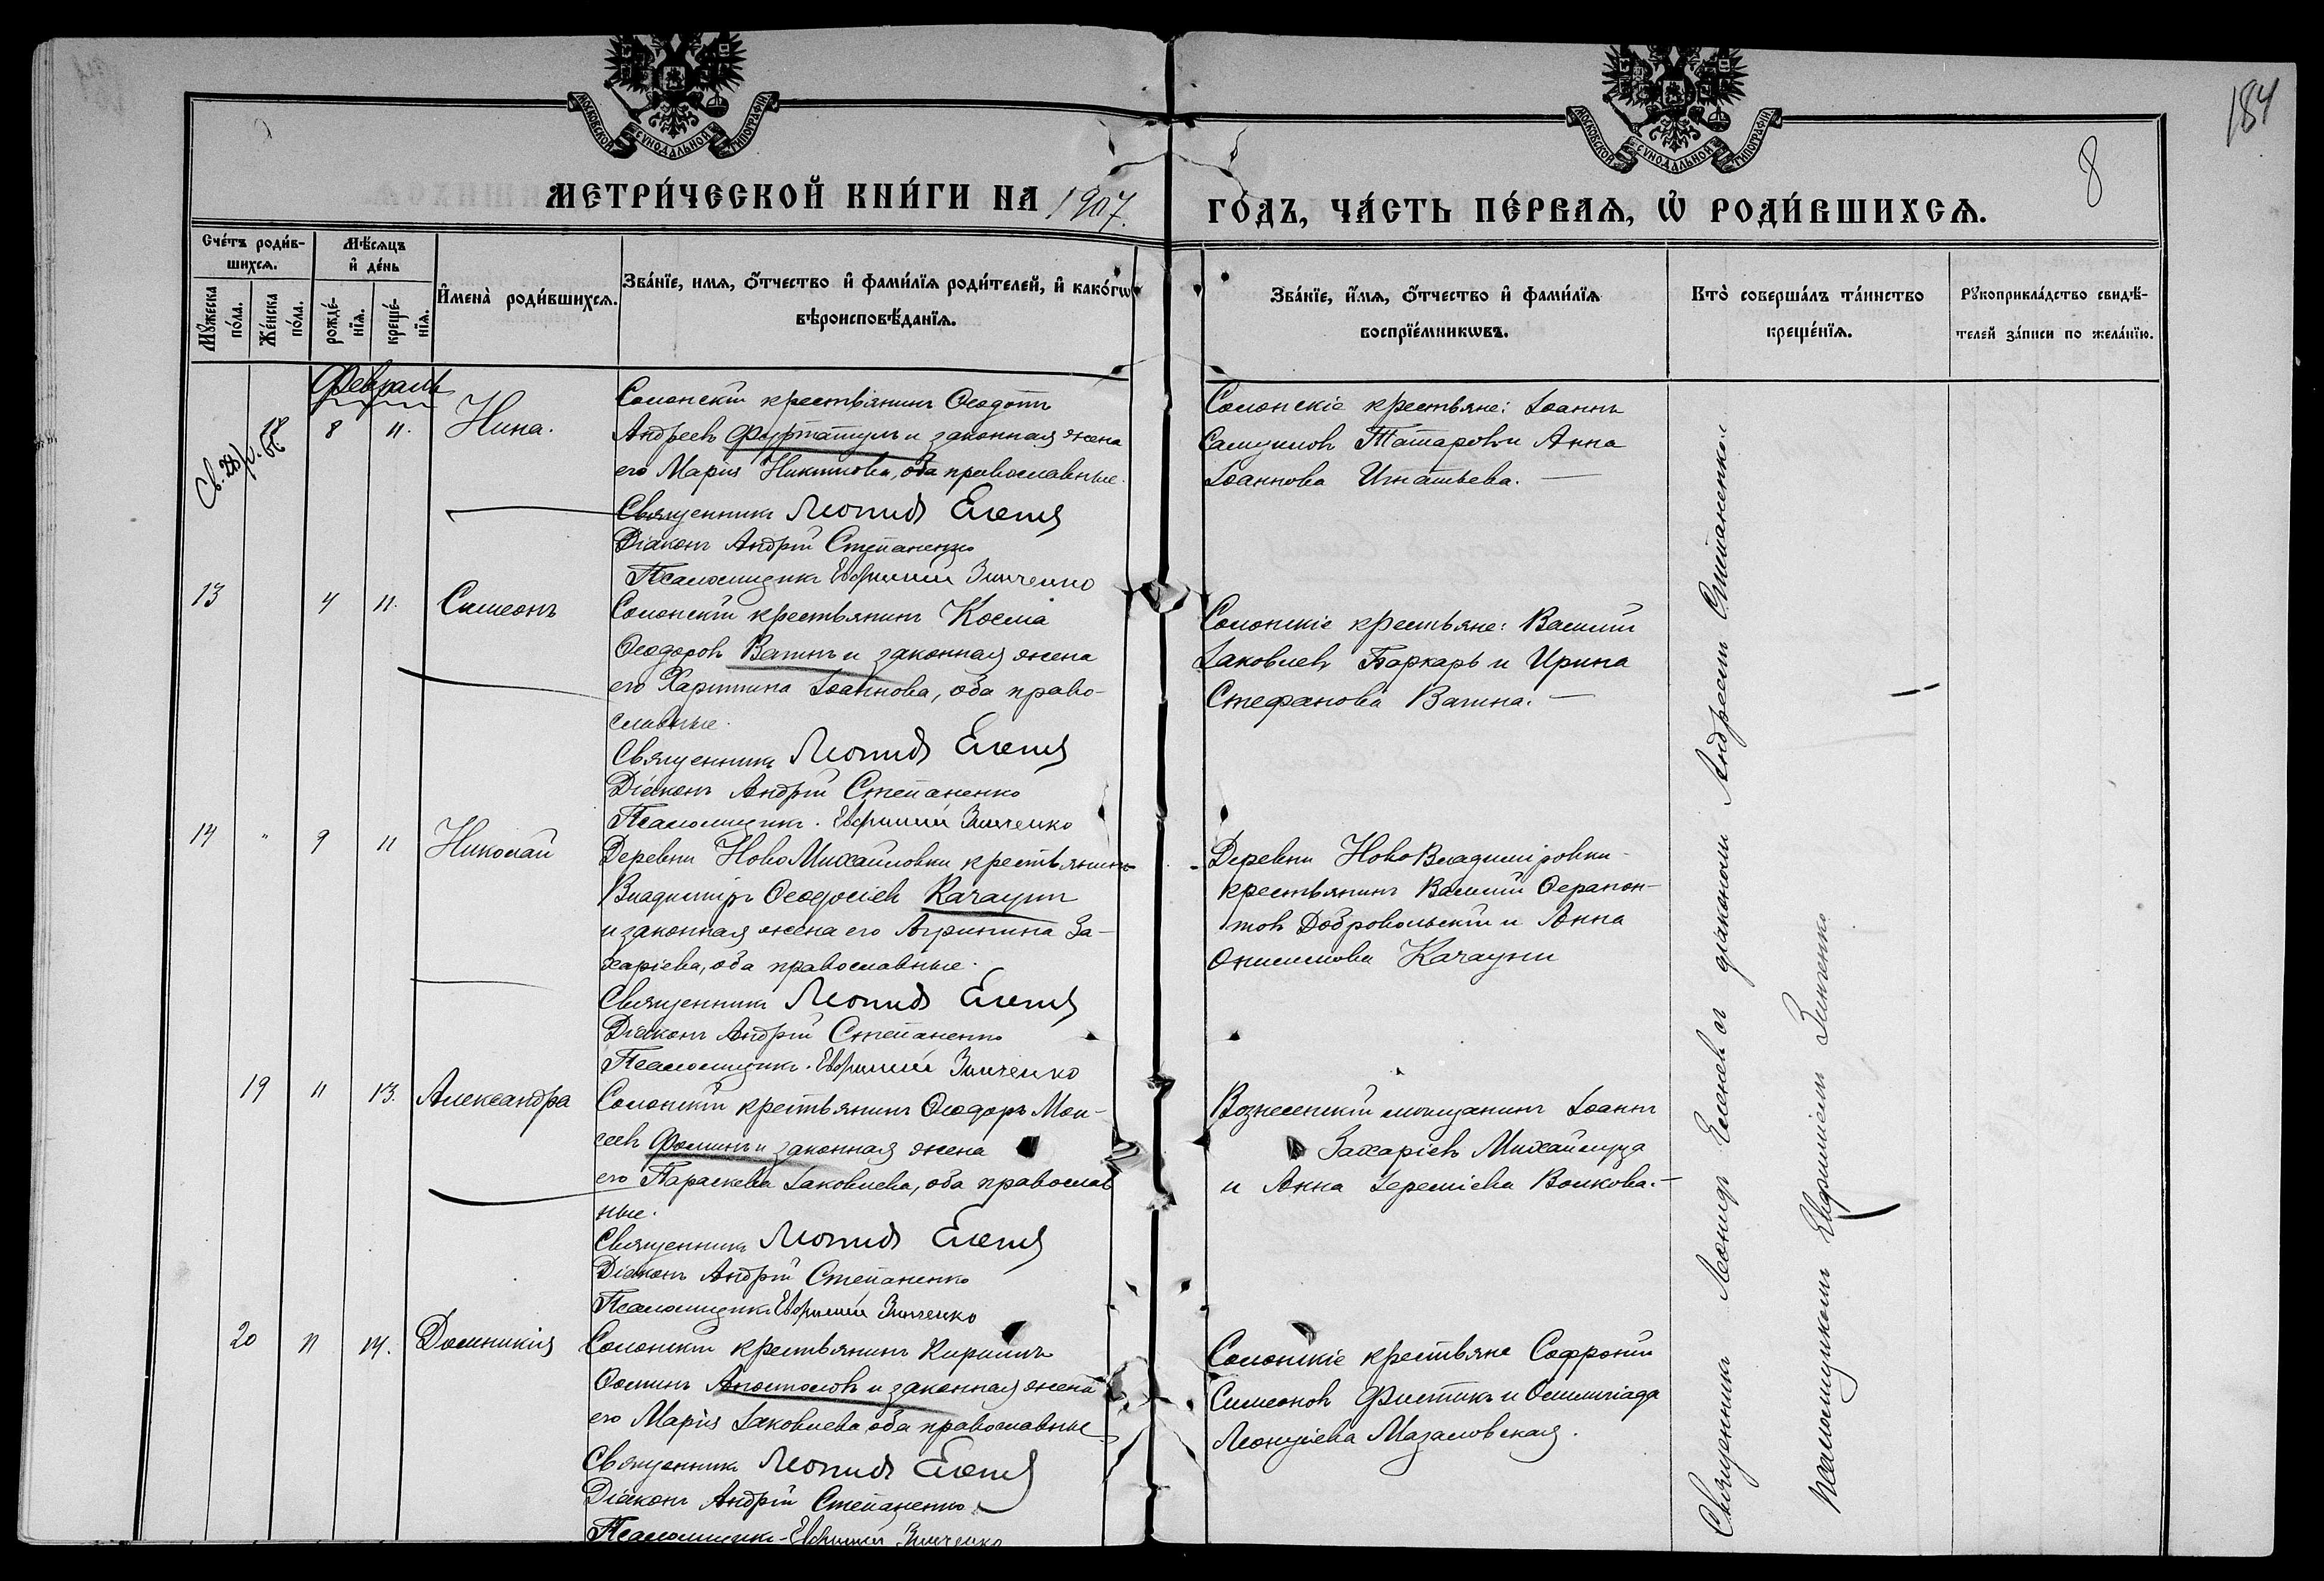 184
8
МОСКОВСКОЙ СУНОДАЛЬНОЙ ТИПОГРАФІИ
МОСКОВСКОЙ СУНОДАЛЬНОЙ ТИПОГРАФІИ
МЕТРИ́ЧЕСКОЙ КНИ́ГИ НА 1907 ГО́ДЪ, ЧА́СТЬ ПЕ́РВАѦ, Ѡ РОДИ́ВШИХСѦ.
Сче́тъ роди́в-
шихсѧ.
Мꙋ́жеска
по́ла.
Же́нска
по́ла.
Мѣ́сѧцъ
и҆ де́нь
рожде́-
нїѧ.
креще́-
нїѧ.
И҆мена̀ роди́вшихсѧ.
Зва́нїе, имѧ, ѻ҆́тчество и҆ фами́лїѧ роди́телей, и҆ како́гѡ
вѣроисповѣ́данїѧ.
Зва́нїе, и҆́мѧ, ѻ҆́тчество и҆ фами́лїѧ
воспрїе́мникѡвъ.
Кто̀ соверша́лъ та́инство
креще́нїѧ.
Рꙋкоприкла́дство свидѣ́-
телей за́писи по жела́нїю.
Февраль
8 11. Нина.
Солонскій крестьянинъ Ѳеодотъ
Андреевъ Фуртатулъ и законная жена
его Марія Никитова, оба православные.
Священникъ Леонидъ Еленев
Діаконъ Андрій Степаненко
Псаломщикъ Евфимій Зинченко
Солонскіе крестьяне: Іоаннъ
Самуиловъ Татаровъ и Анна
Іоаннова Игнатьева. —
13 4 11. Симеонъ
Солонскій крестьянинъ Косма
Ѳеодоровъ Ватинъ и законная жена
его Харитина Іоаннова, оба право-
славные.
Священникъ Леонидъ Еленев
Діаконъ Андрій Степаненко
Псаломщикъ. Евфимій Зинченко
Солонскіе крестьяне: Василій
Іаковлевъ Баркарь и Ирина
Стефанова Ватина. —
14 " 9 11 Николай
Деревни НовоМихайловки крестьянинъ
Владиміръ Ѳеодосіевъ Качаунъ
и законная жена его Агрипина За-
харіева, оба православные.
Священникъ Леонидъ Еленев
Діаконъ Андрій Степаненко
Псаломщикъ. Евфимій Зинченко
Деревни НовоВладиміровки
крестьянинъ Василій Ѳерапон-
товъ Добровольскій и Анна
Онисимова Качауни
19 11 13. Александра
Солонскій крестьянинъ Ѳеодоръ Мои-
сеевъ Фоминъ и законная жена
его Параскева Іаковлева, оба православ
ные.
Священникъ Леонидъ Еленев
Діаконъ Андрій Степаненко
Псаломщикъ Евфимій Зинченко
Вознесенскій мѣщанинъ Іоаннъ
Захаріевъ Михайлуца
и Анна Іереміева Волкова. —
20 11 14. Домникія
Солонскій крестьянинъ Кириллъ
Ѳоминъ Апостоловъ и законная жена
его Марія Іаковлева оба православные
Священникъ Леонидъ Еленев
Діаконъ Андрій Степаненко
Псаломщикъ-Евфимій Зинченко
Солонскіе крестьяне Софроній
Симеоновъ Фистикъ и Олимпіада
Леонтіева Мазаловская.
Священникъ Леонидъ Еленевъ съ діакономъ Андреемъ Степаненкомъ
Псаломщикомъ Евфиміемъ Зинченко